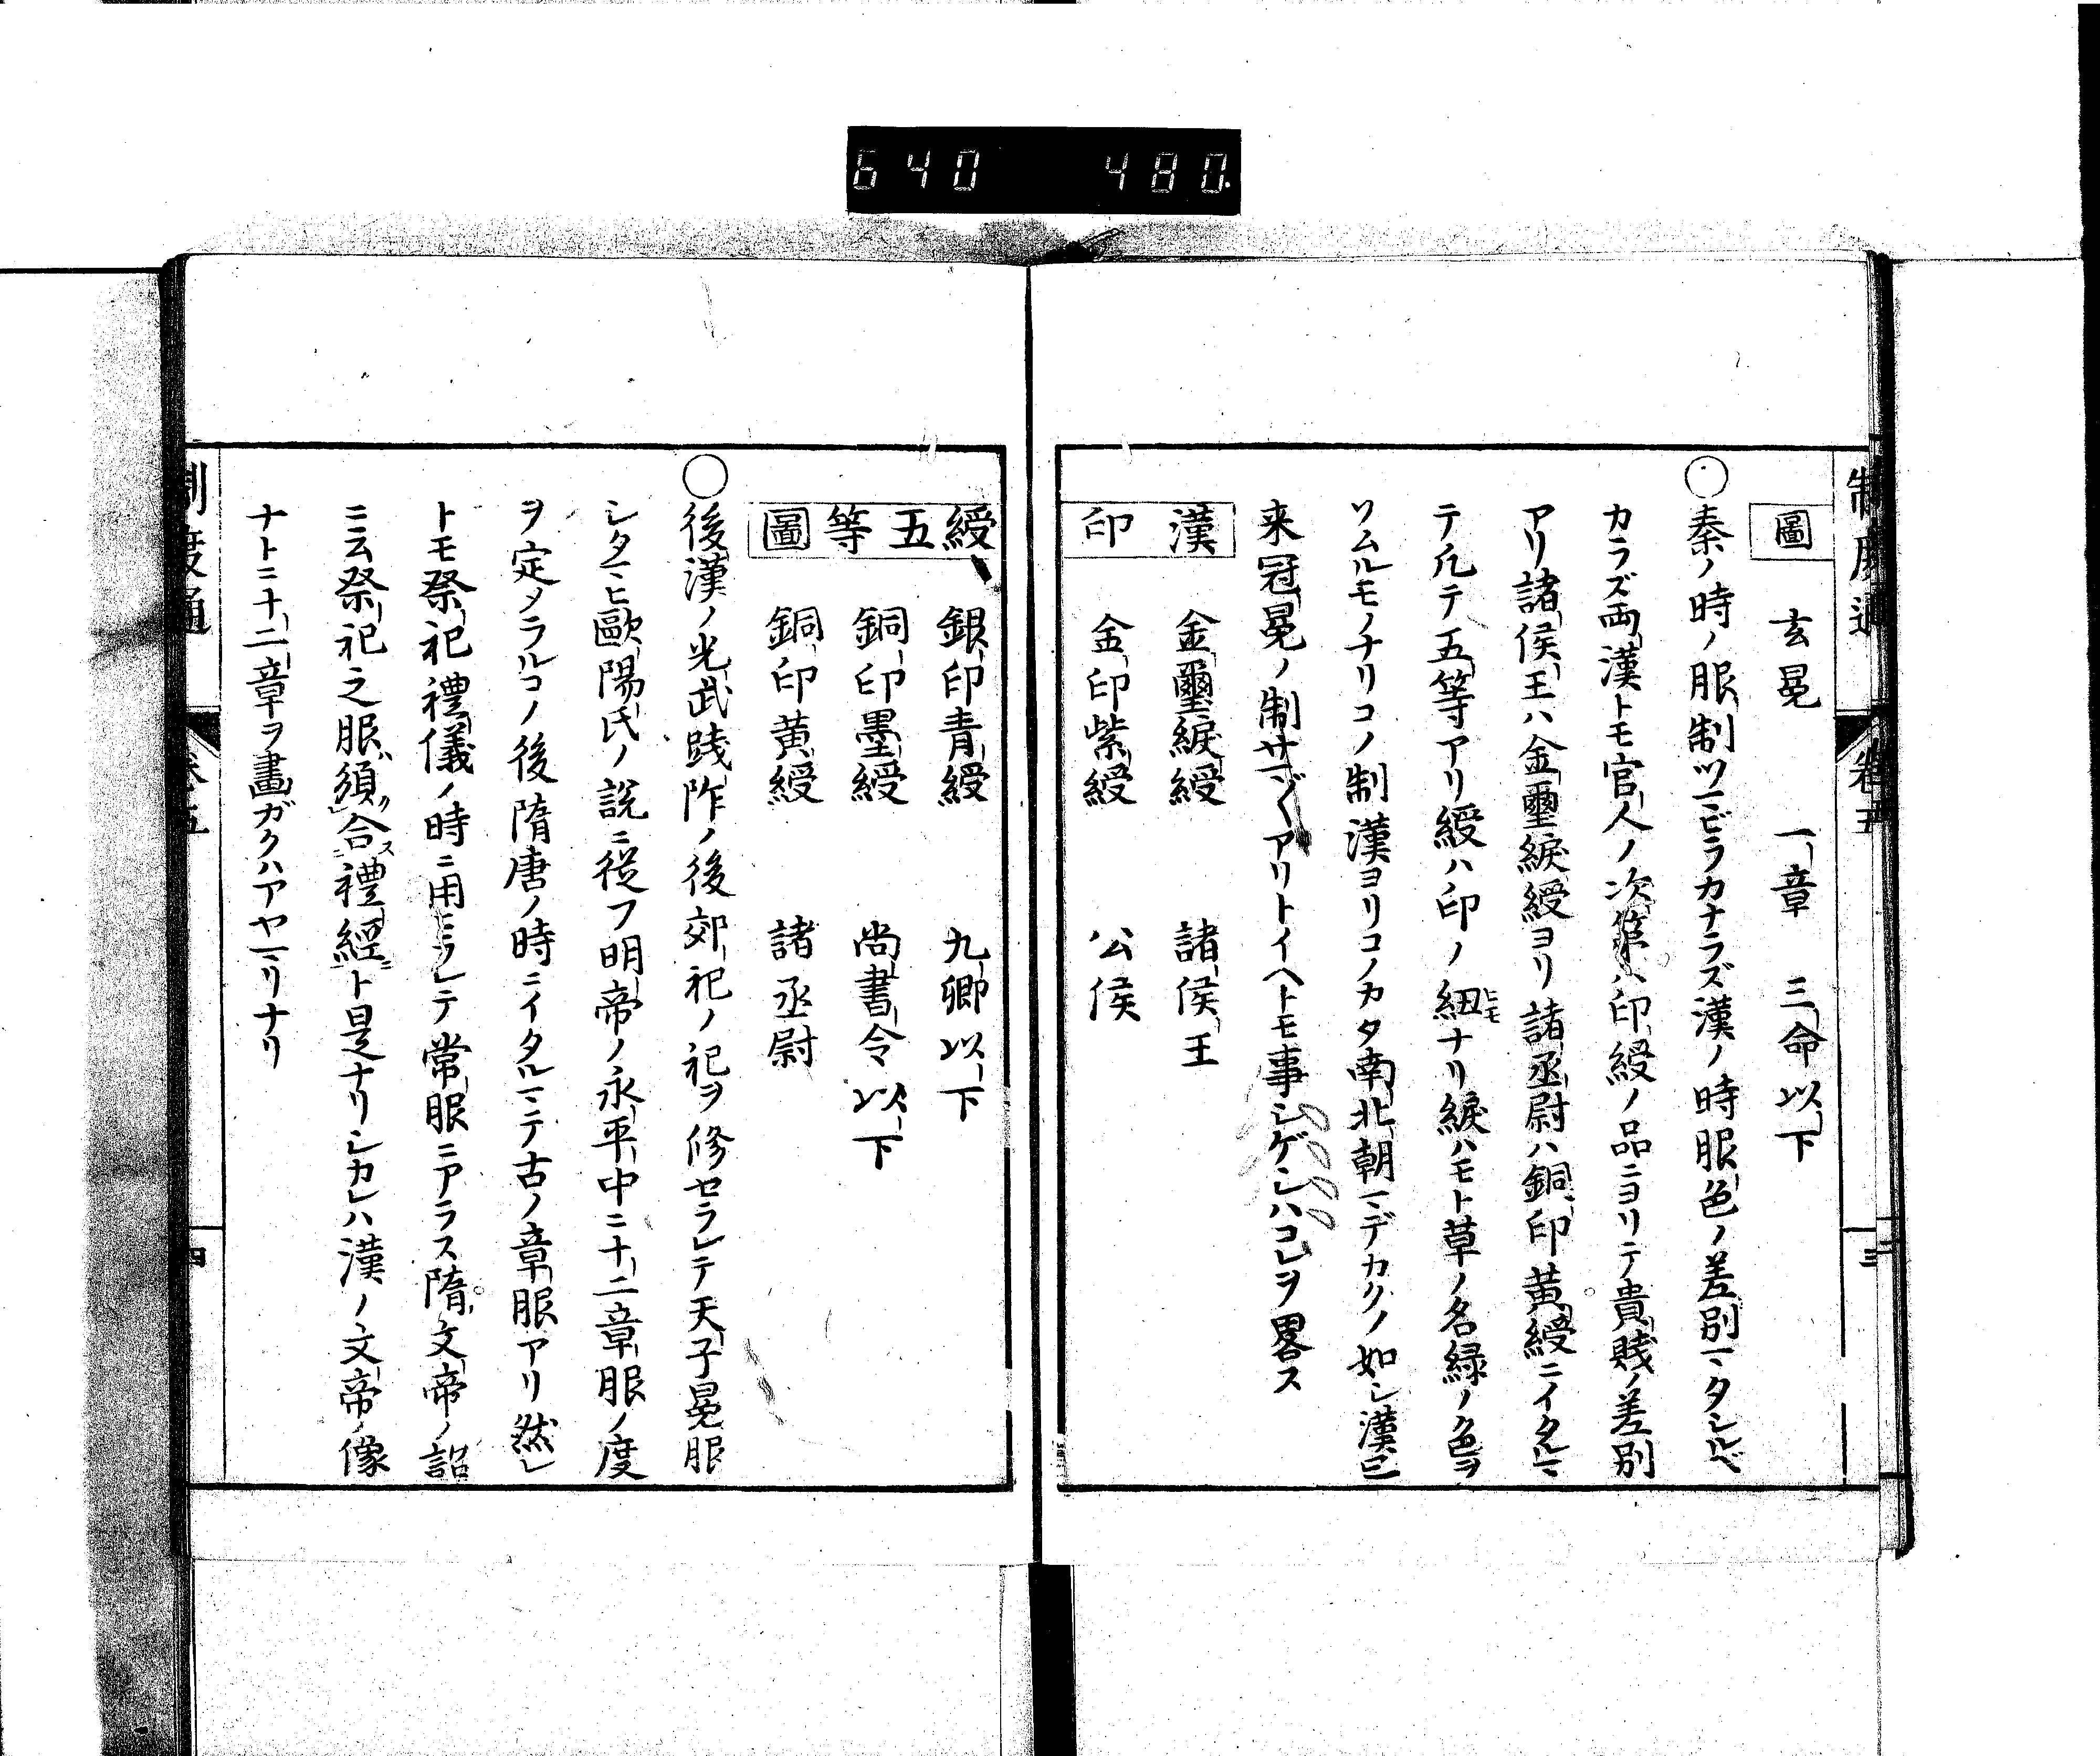 640 480
制度通 卷五 三
圖 玄冕 一章 三命以下
〇秦ノ時ノ服制ツマビラカナラズ漢ノ時服色ノ差別マタシルベ
カラズ両漢トモ官人ノ次第ハ印綬ノ品ニヨリテ貴賤ノ差別
アリ諸侯王ハ金璽綟綬ヨリ諸丞尉ハ銅印黄綬ニイタルマ
テ凢テ五等アリ綬ハ印ノ紐ヒモナリ綟ハモト草ノ名緑ノ色ヲ
ソムルモノナリコノ制漢ヨリコノカタ南北朝マデカクノ如シ漢已
来冠冕ノ制サマ〲アリトイヘトモ事シゲシハコレヲ畧ス
漢 金璽綟綬 諸侯王
印 金印紫綬 公侯
綬 銀印青綬 九卿以下
五等 銅印墨綬 尚書令以下
圖 銅印黄綬 諸丞尉
〇後漢ノ光武践阼ノ後郊祀ノ祀ヲ修セラレテ天子冕服
シタマヒ歐陽氏ノ説ニ從フ明帝ノ永平中ニ十二章服ノ度
ヲ定メラルコノ後隋唐ノ時ニイタルマテ古ノ章服アリ然レ
トモ祭祀禮儀ノ時ニ用ラレテ常服ニアラス隋文帝ノ詔
ニ云祭祀之服須合禮經ト是ナリシカレハ漢ノ文帝ノ像
ナトニ十二章ヲ畫ガクハアヤマリナリ
制度通 卷五 四